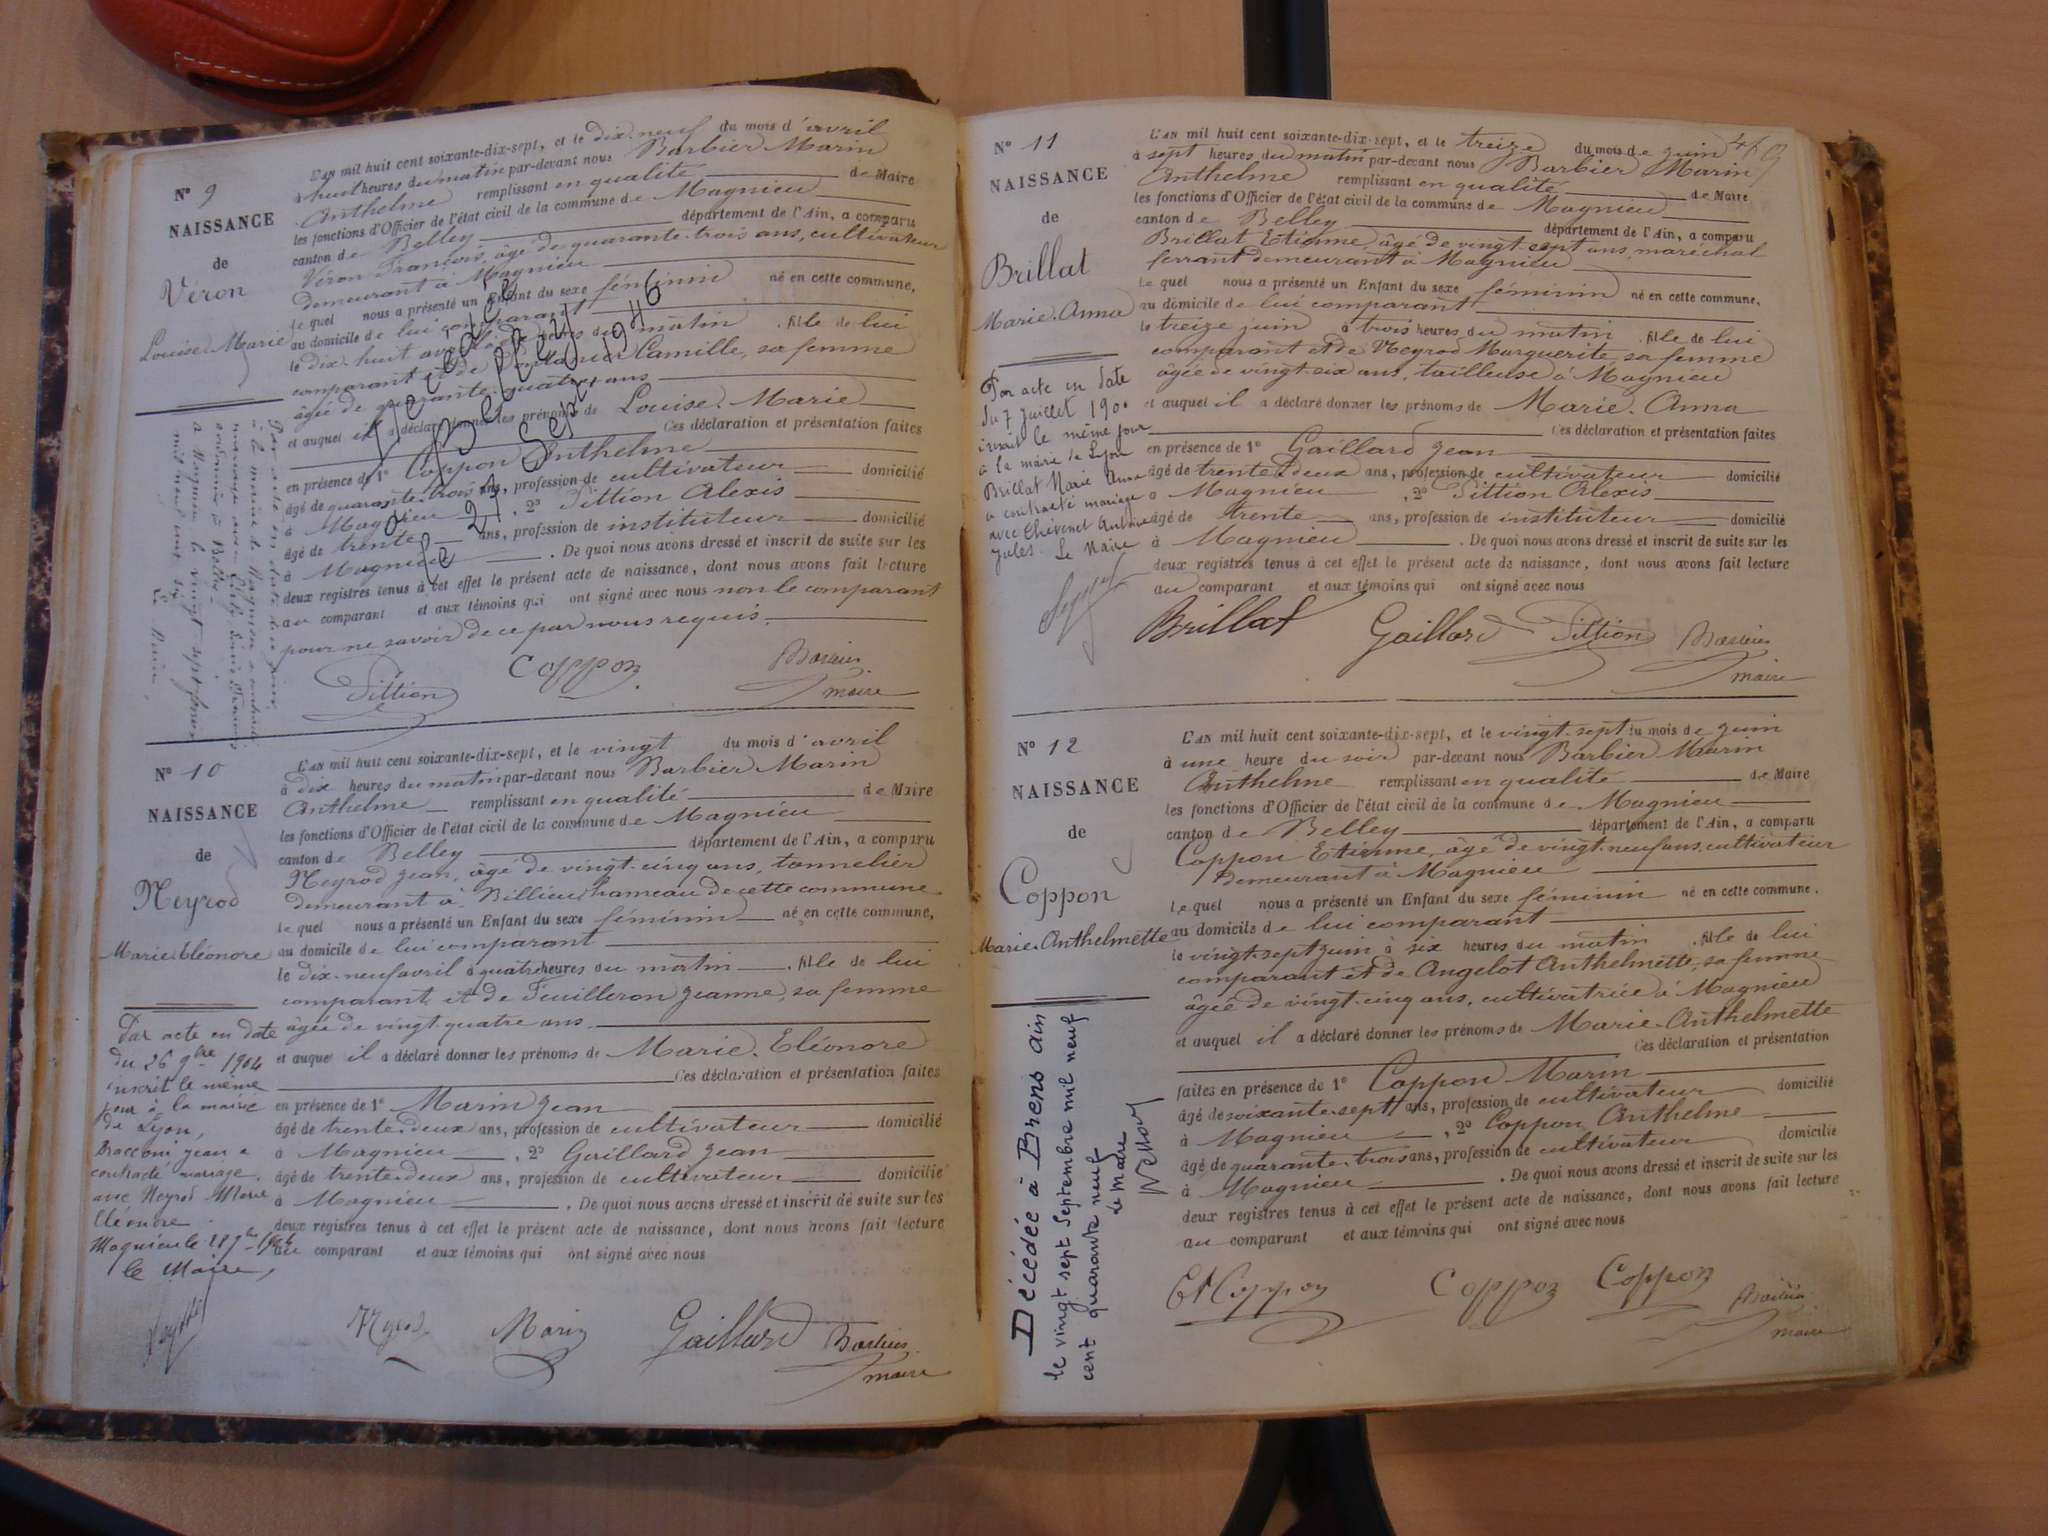 N° 9
NAISSANCE
de
Véron
Louise Marie
L'AN mil huit cent soixante-dix-sept, et le dix-neuf du mois d'avril
à huit heures du matin par-devant nous Barbier Marin
Anthelme remplissant en qualité de Maire
les fonctions d'Officier de l'état civil de la commune de Magnieu
canton de Belley département de l'Ain, a comparu
Véron François, âgé de quarante-trois ans, cultivateur
demeurant à Magnieu
le quel nous a présenté un Enfant du sexe féminin né en cette commune,
au domicile de lui comparant
le dix-huit avril à heures du matin, fille de lui
comparant et de Camille, sa femme
âgée de quarante-quatre ans
et auquel il a déclaré donner les prénoms de Louise Marie
Ces déclaration et présentation faites
en présence de 1° Coppon Anthelme
âgé de quarante-trois ans, profession de cultivateur domicilié
à Magnieu, 2° Dittion Alexis
âgé de trente ans, profession de instituteur domicilié
à Magnieu. De quoi nous avons dressé et inscrit de suite sur les
deux registres tenus à cet effet le présent acte de naissance, dont nous avons fait lecture
au comparant et aux témoins qui ont signé avec nous non le comparant
pour ne savoir de ce par nous requis.
Décédée
à Belley
le 21 Sept. 1946
Dittion Coppon Barbier
maire
N° 10
NAISSANCE
de
Neyrod
Marie Eléonore
L'AN mil huit cent soixante-dix-sept, et le vingt du mois d'avril
à dix heures du matin par-devant nous Barbier Marin
Anthelme remplissant en qualité de Maire
les fonctions d'Officier de l'état civil de la commune de Magnieu
canton de Belley département de l'Ain, a comparu
Neyrod Jean, âgé de vingt-cinq ans, tonnelier
demeurant à Billieu hameau de cette commune
le quel nous a présenté un Enfant du sexe féminin né en cette commune,
au domicile de lui comparant
le dix-neuf avril à quatre heures du matin, fille de lui
comparant et de Feuilleron Jeanne, sa femme
âgée de vingt-quatre ans.
et auquel il a déclaré donner les prénoms de Marie Eléonore
Ces déclaration et présentation faites
en présence de 1° Marin Jean
âgé de trente-deux ans, profession de cultivateur domicilié
à Magnieu, 2° Gaillard Jean
âgé de trente-deux ans, profession de cultivateur domicilié
à Magnieu. De quoi nous avons dressé et inscrit de suite sur les
deux registres tenus à cet effet le présent acte de naissance, dont nous avons fait lecture
au comparant et aux témoins qui ont signé avec nous
Par acte en date
du 26 9bre 1904
inscrit le même
jour à la mairie
de Lyon,
Bracconi Jean a
contracté mariage
avec Neyrod Marie
Eléonore
Magnieu le 28 9bre 1904
Le Maire,
Neyrod Marin Gaillard Barbier
maire
N° 11
NAISSANCE
de
Brillat
Marie Anna
L'AN mil huit cent soixante-dix-sept, et le treize du mois de juin
à sept heures du matin par-devant nous Barbier Marin
Anthelme remplissant en qualité de Maire
les fonctions d'Officier de l'état civil de la commune de Magnieu
canton de Belley département de l'Ain, a comparu
Brillat Etienne, âgé de vingt-sept ans, maréchal
ferrant demeurant à Magnieu
le quel nous a présenté un Enfant du sexe féminin né en cette commune,
au domicile de lui comparant
le treize juin à trois heures du matin, fille de lui
comparant et de Neyrod Marguerite sa femme
âgée de vingt-six ans, tailleuse à Magnieu
et auquel il a déclaré donner les prénoms de Marie Anna
Ces déclaration et présentation faites
en présence de 1° Gaillard Jean
âgé de trente-deux ans, profession de cultivateur domicilié
à Magnieu, 2° Dittion Alexis
âgé de trente ans, profession de instituteur domicilié
à Magnieu. De quoi nous avons dressé et inscrit de suite sur les
deux registres tenus à cet effet le présent acte de naissance, dont nous avons fait lecture
au comparant et aux témoins qui ont signé avec nous
Par acte en date
du 7 juillet 1900
inscrit le même jour
à la mairie de Lyon
Brillat Marie Anna
a contracté mariage
avec Chevenet Antoine
Jules. Le Maire
Brillat Gaillard Dittion Barbier
maire
N° 12
NAISSANCE
de
Coppon
Marie Anthelmette
L'AN mil huit cent soixante-dix-sept, et le vingt-sept du mois de juin
à une heure du soir par-devant nous Barbier Marin
Anthelme remplissant en qualité de Maire
les fonctions d'Officier de l'état civil de la commune de Magnieu
canton de Belley département de l'Ain, a comparu
Coppon Etienne, âgé de vingt-neuf ans, cultivateur
demeurant à Magnieu
le quel nous a présenté un Enfant du sexe féminin né en cette commune.
au domicile de lui comparant
le vingt-sept juin à six heures du matin, fille de lui
comparant et de Angelot Anthelmette, sa femme
âgée de vingt-cinq ans, cultivatrice à Magnieu
et auquel il a déclaré donner les prénoms de Marie Anthelmette
Ces déclaration et présentation
faites en présence de 1° Coppon Marin
âgé de soixante-sept ans, profession de cultivateur domicilié
à Magnieu, 2° Coppon Anthelme
âgé de quarante-trois ans, profession de cultivateur domicilié
à Magnieu. De quoi nous avons dressé et inscrit de suite sur les
deux registres tenus à cet effet le présent acte de naissance, dont nous avons fait lecture
au comparant et aux témoins qui ont signé avec nous
Décédée à Brens Ain
le vingt sept Septembre mil neuf
cent quarante neuf
Le Maire
Et Coppon Coppon Coppon Barbier
maire